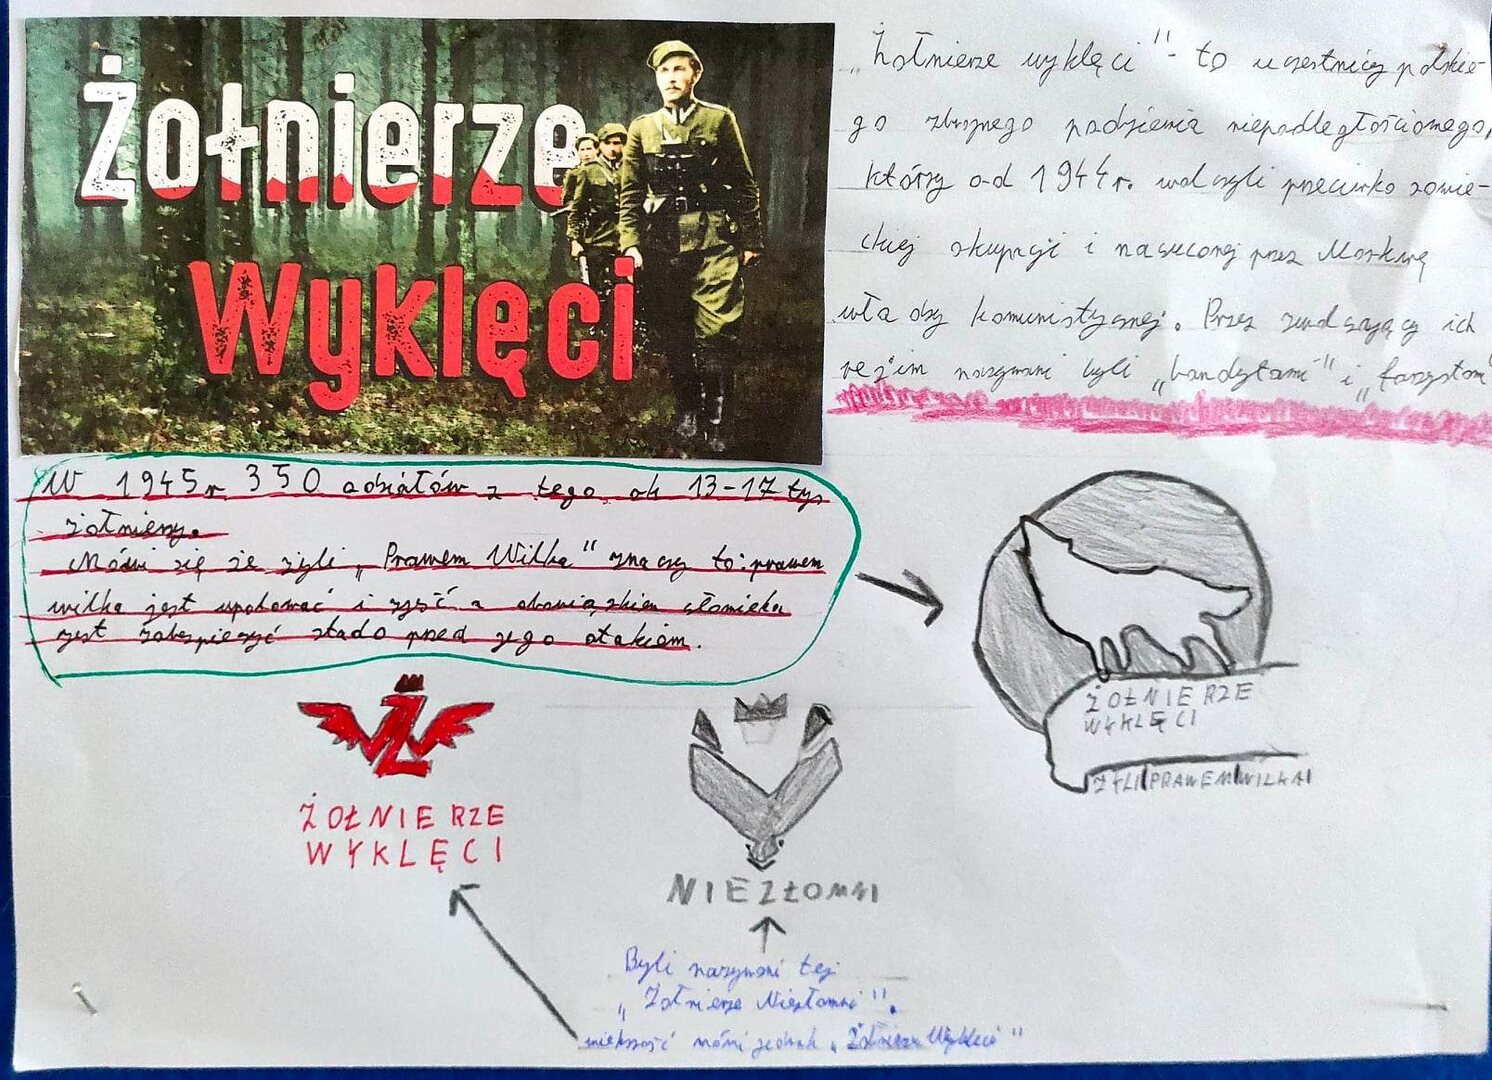 Żołnierze
Wyklęci
„Żołnierze wyklęci" - to uczestnicy polskie-
go zbrojnego podziemia niepodległościowego,
którzy od 1944r. walczyli przeciwko sowie-
ckiej okupacji i narzuconej przez Moskwę
władzy komunistycznej. Przez zwalczający ich
reżim nazywani byli „bandytami" i „faszystami"
W 1945r 350 oddziałów z tego ok 13-17 tys
żołnierzy.
Mówi się że żyli „Prawem Wilka" znaczy to: prawem
wilka jest upolować i zjeść a obowiązkiem człowieka
jest zabezpieczyć stado przed jego atakiem.
ŻOŁNIERZE
WYKLĘCI
ŻYLI PRAWEM WILKA
ŻOŁNIERZE
WYKLĘCI
NIEZŁOMNI
Byli nazywani też
„Żołnierze Niezłomni".
większość mówi jednak „Żołnierze Wyklęci"